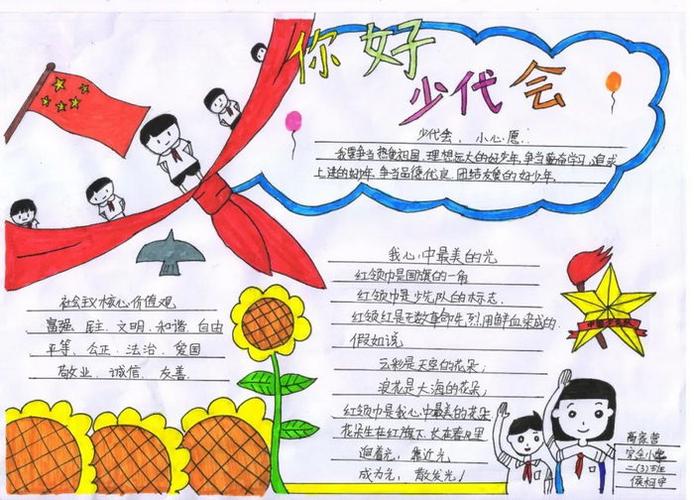 你好
少代会
少代会，小心愿：
我要争当热爱祖国、理想远大的好少年，争当勤奋学习、追求
上进的好少年，争当品德优良、团结友爱的好少年。
我心中最美的光
红领巾是国旗的一角
红领巾是少先队的标志，
红领红是无数革命先烈用鲜血染成的.
假如说
云彩是天空的花朵，
浪花是大海的花朵，
红领巾是我心中最美的花朵
花朵生在红旗下，长在春风里
追着光，靠近光
成为光，散发光！
社会主义核心价值观
富强、民主、文明、和谐、自由
平等、公正、法治、爱国
敬业、诚信、友善.
中国少先队
完全小学
二(3)班